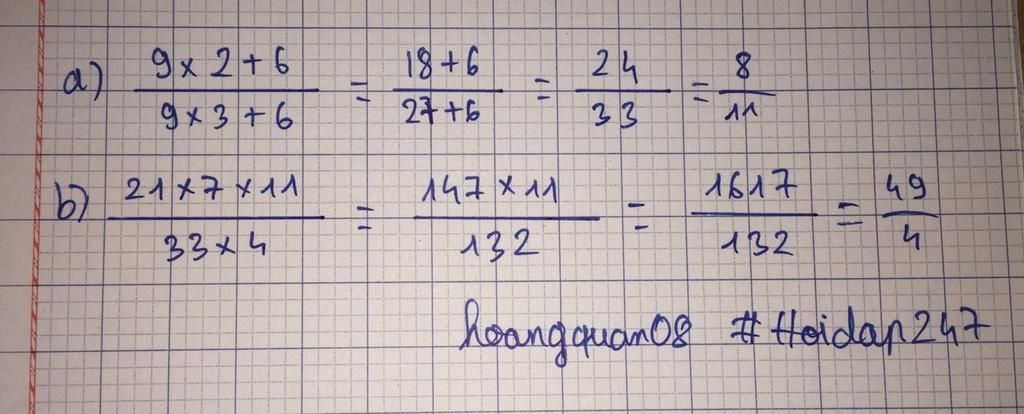 a) 9 x 2 + 6 / 9 x 3 + 6 = 18 + 6 / 27 + 6 = 24 / 33 = 8 / 11
b) 21 x 7 x 11 / 33 x 4 = 147 x 11 / 132 = 1617 / 132 = 49 / 4
hoangquan08 #Hoidap247